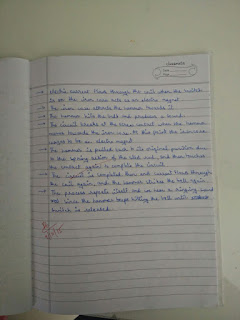 classmate
Date
Page
→ electric current flows through the coil when the switch
is on the iron core acts as an electro magnet.
→ The iron core attracts the hammer towards it
→ The hammer hits the bell and produces a sound.
→ The circuit breaks at the screw contact when the hammer
moves towards the iron core. At this point the iron core
ceases to be an electro magnet
→ The hammer is pulled back to its original position due
to the spring action of the steel and then touches
the contact again to complete the circuit.
→ The circuit is completed then and current flows through
the coil again, and the hammer strikes the bell again
→ The process repeats itself and we hear a ringing sound
bell since the hammer keeps hitting the bell until
switch is released.